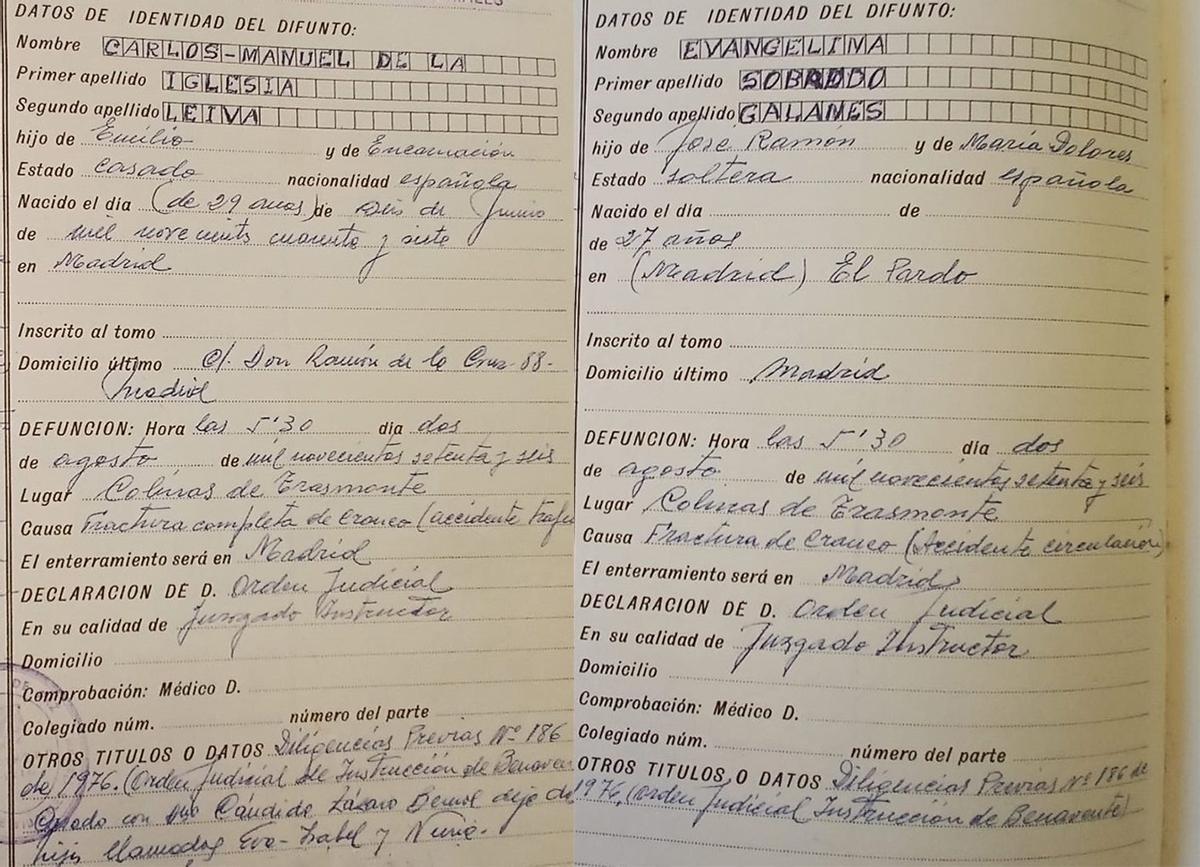 DATOS DE IDENTIDAD DEL DIFUNTO:
Nombre CARLOS-MANUEL DE LA
Primer apellido IGLESIA
Segundo apellido LEIVA
hijo de Emilio y de Encarnación
Estado casado nacionalidad española
Nacido el día (de 29 años) de Seis de Junio
de mil novecients cuarenta y siete
en Madrid
Inscrito al tomo
Domicilio último C/. Don Ramón de la Cruz-88-
Madrid
DEFUNCION: Hora las 5'30 día dos
de agosto de mil novecientos setenta y seis
Lugar Colinas de Trasmonte
Causa Fractura completa de craneo (accidente
El enterramiento será en Madrid
DECLARACION DE D. Orden Judicial
En su calidad de Juzgado Instructor
Domicilio
Comprobación: Médico D.
Colegiado núm. número del parte
OTROS TITULOS O DATOS Diligencias Previas Nº 186
de 1976. (Orden Judicial de Instrucción de Benaven
Casado con Candida Lázaro dejo de
hijas llamadas Eva-Isabel y Nuria.
DATOS DE IDENTIDAD DEL DIFUNTO:
Nombre EVANGELINA
Primer apellido SOBREDO
Segundo apellido GALANES
hijo de José Ramón y de María Dolores
Estado soltera nacionalidad española
Nacido el día de
de 27 años
en (Madrid) El Pardo
Inscrito al tomo
Domicilio último Madrid
DEFUNCION: Hora las 5'30 día dos
de agosto de mil novecientos setenta y seis
Lugar Colinas de Trasmonte
Causa Fractura de craneo (Accidente circulación)
El enterramiento será en Madrid
DECLARACION DE D. Orden Judicial
En su calidad de Juzgado Instructor
Domicilio
Comprobación: Médico D.
Colegiado núm. número del parte
OTROS TITULOS O DATOS Diligencias Previas Nº 186 de
1976. (Orden Judicial Instrucción de Benavente)